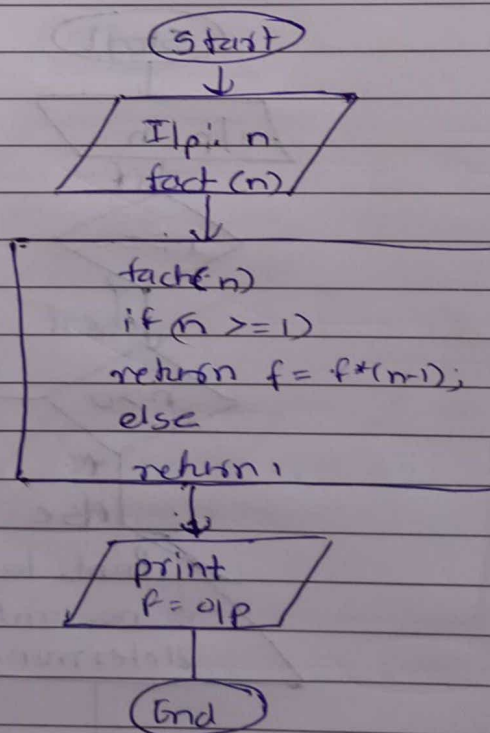 Start
I/p: n
fact (n)
fact(n)
if (n >=1)
return f = f*(n-1);
else
return 1
print
f = o/p
End